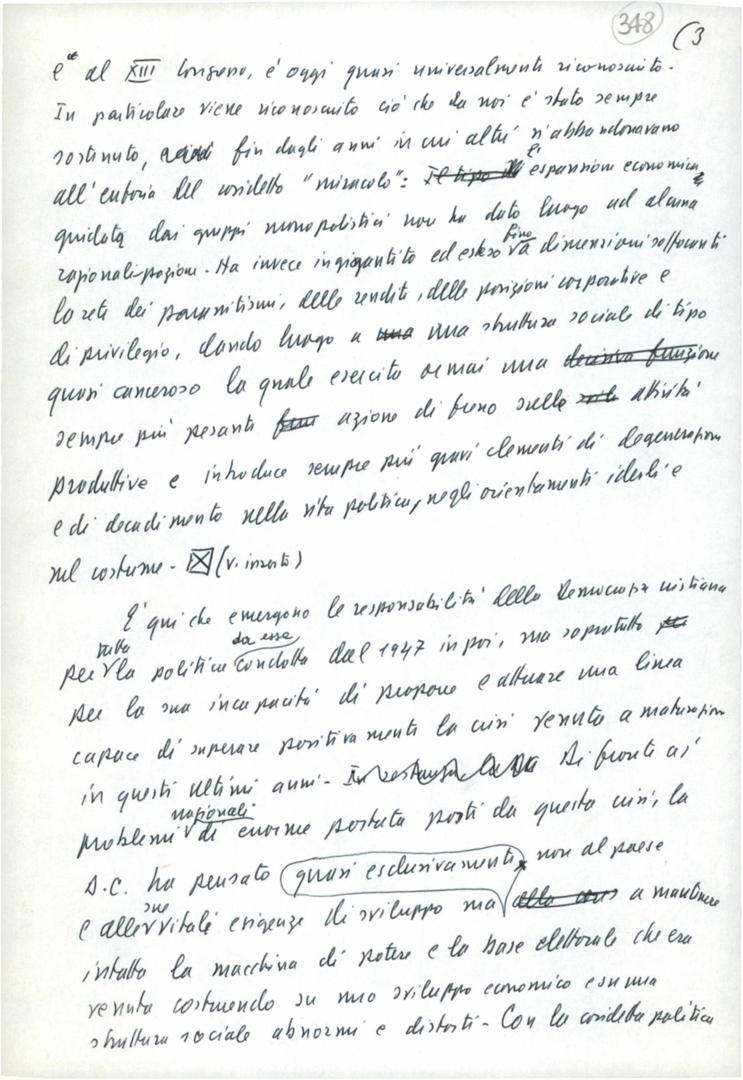 348 (3
e al XIII Congresso, è oggi quasi universalmente riconosciuto.
In particolare viene riconosciuto ciò che da noi è stato sempre
sostenuto, fin dagli anni in cui altri s'abbandonavano
all'euforia del cosidetto "miracolo": Il tipo di espansione economica
guidata dai gruppi monopolistici non ha dato luogo ad alcuna
razionalizzazione. Ha invece ingigantito ed esteso fino a dimensioni soffocanti
la rete dei parassitismi, delle rendite, delle posizioni corporative e
di privilegio, dando luogo a una una struttura sociale di tipo
quasi canceroso la quale esercita ormai una decisiva funzione
sempre più pesante azione di freno sulle attività
produttive e introduce sempre più gravi elementi di degenerazione
e di decadimento nella vita politica, negli orientamenti ideali e
nel costume. (v. inserto)
È qui che emergono le responsabilità della Democrazia cristiana
per tutta la politica da essa condotta dal 1947 in poi, ma sopratutto
per la sua incapacità di proporre e attuare una linea
capace di superare positivamente la crisi venuta a maturazione
in questi ultimi anni. Di fronte ai
problemi nazionali di enorme portata posti da questa crisi, la
D.C. ha pensato quasi esclusivamente, non al paese
e alle sue vitali esigenze di sviluppo ma a mantenere
intatta la macchina di potere e la base elettorale che era
venuta costruendo su uno sviluppo economico e su una
struttura sociale abnormi e distorti. Con la cosidetta politica